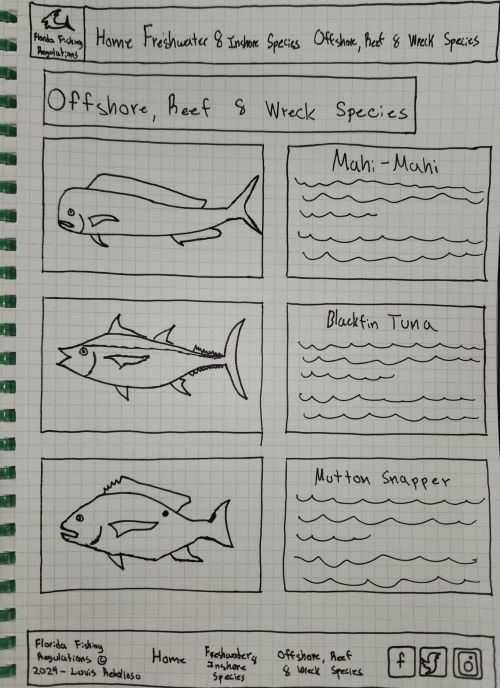 Florida Fishing
Regulations
Home Freshwater & Inshore Species Offshore, Reef & Wreck Species
Offshore, Reef & Wreck Species
Mahi-Mahi
Blackfin Tuna
Mutton Snapper
Florida Fishing
Regulations ©
2024 - Louis
Home
Freshwater &
Inshore
Species
Offshore, Reef
& Wreck Species
f